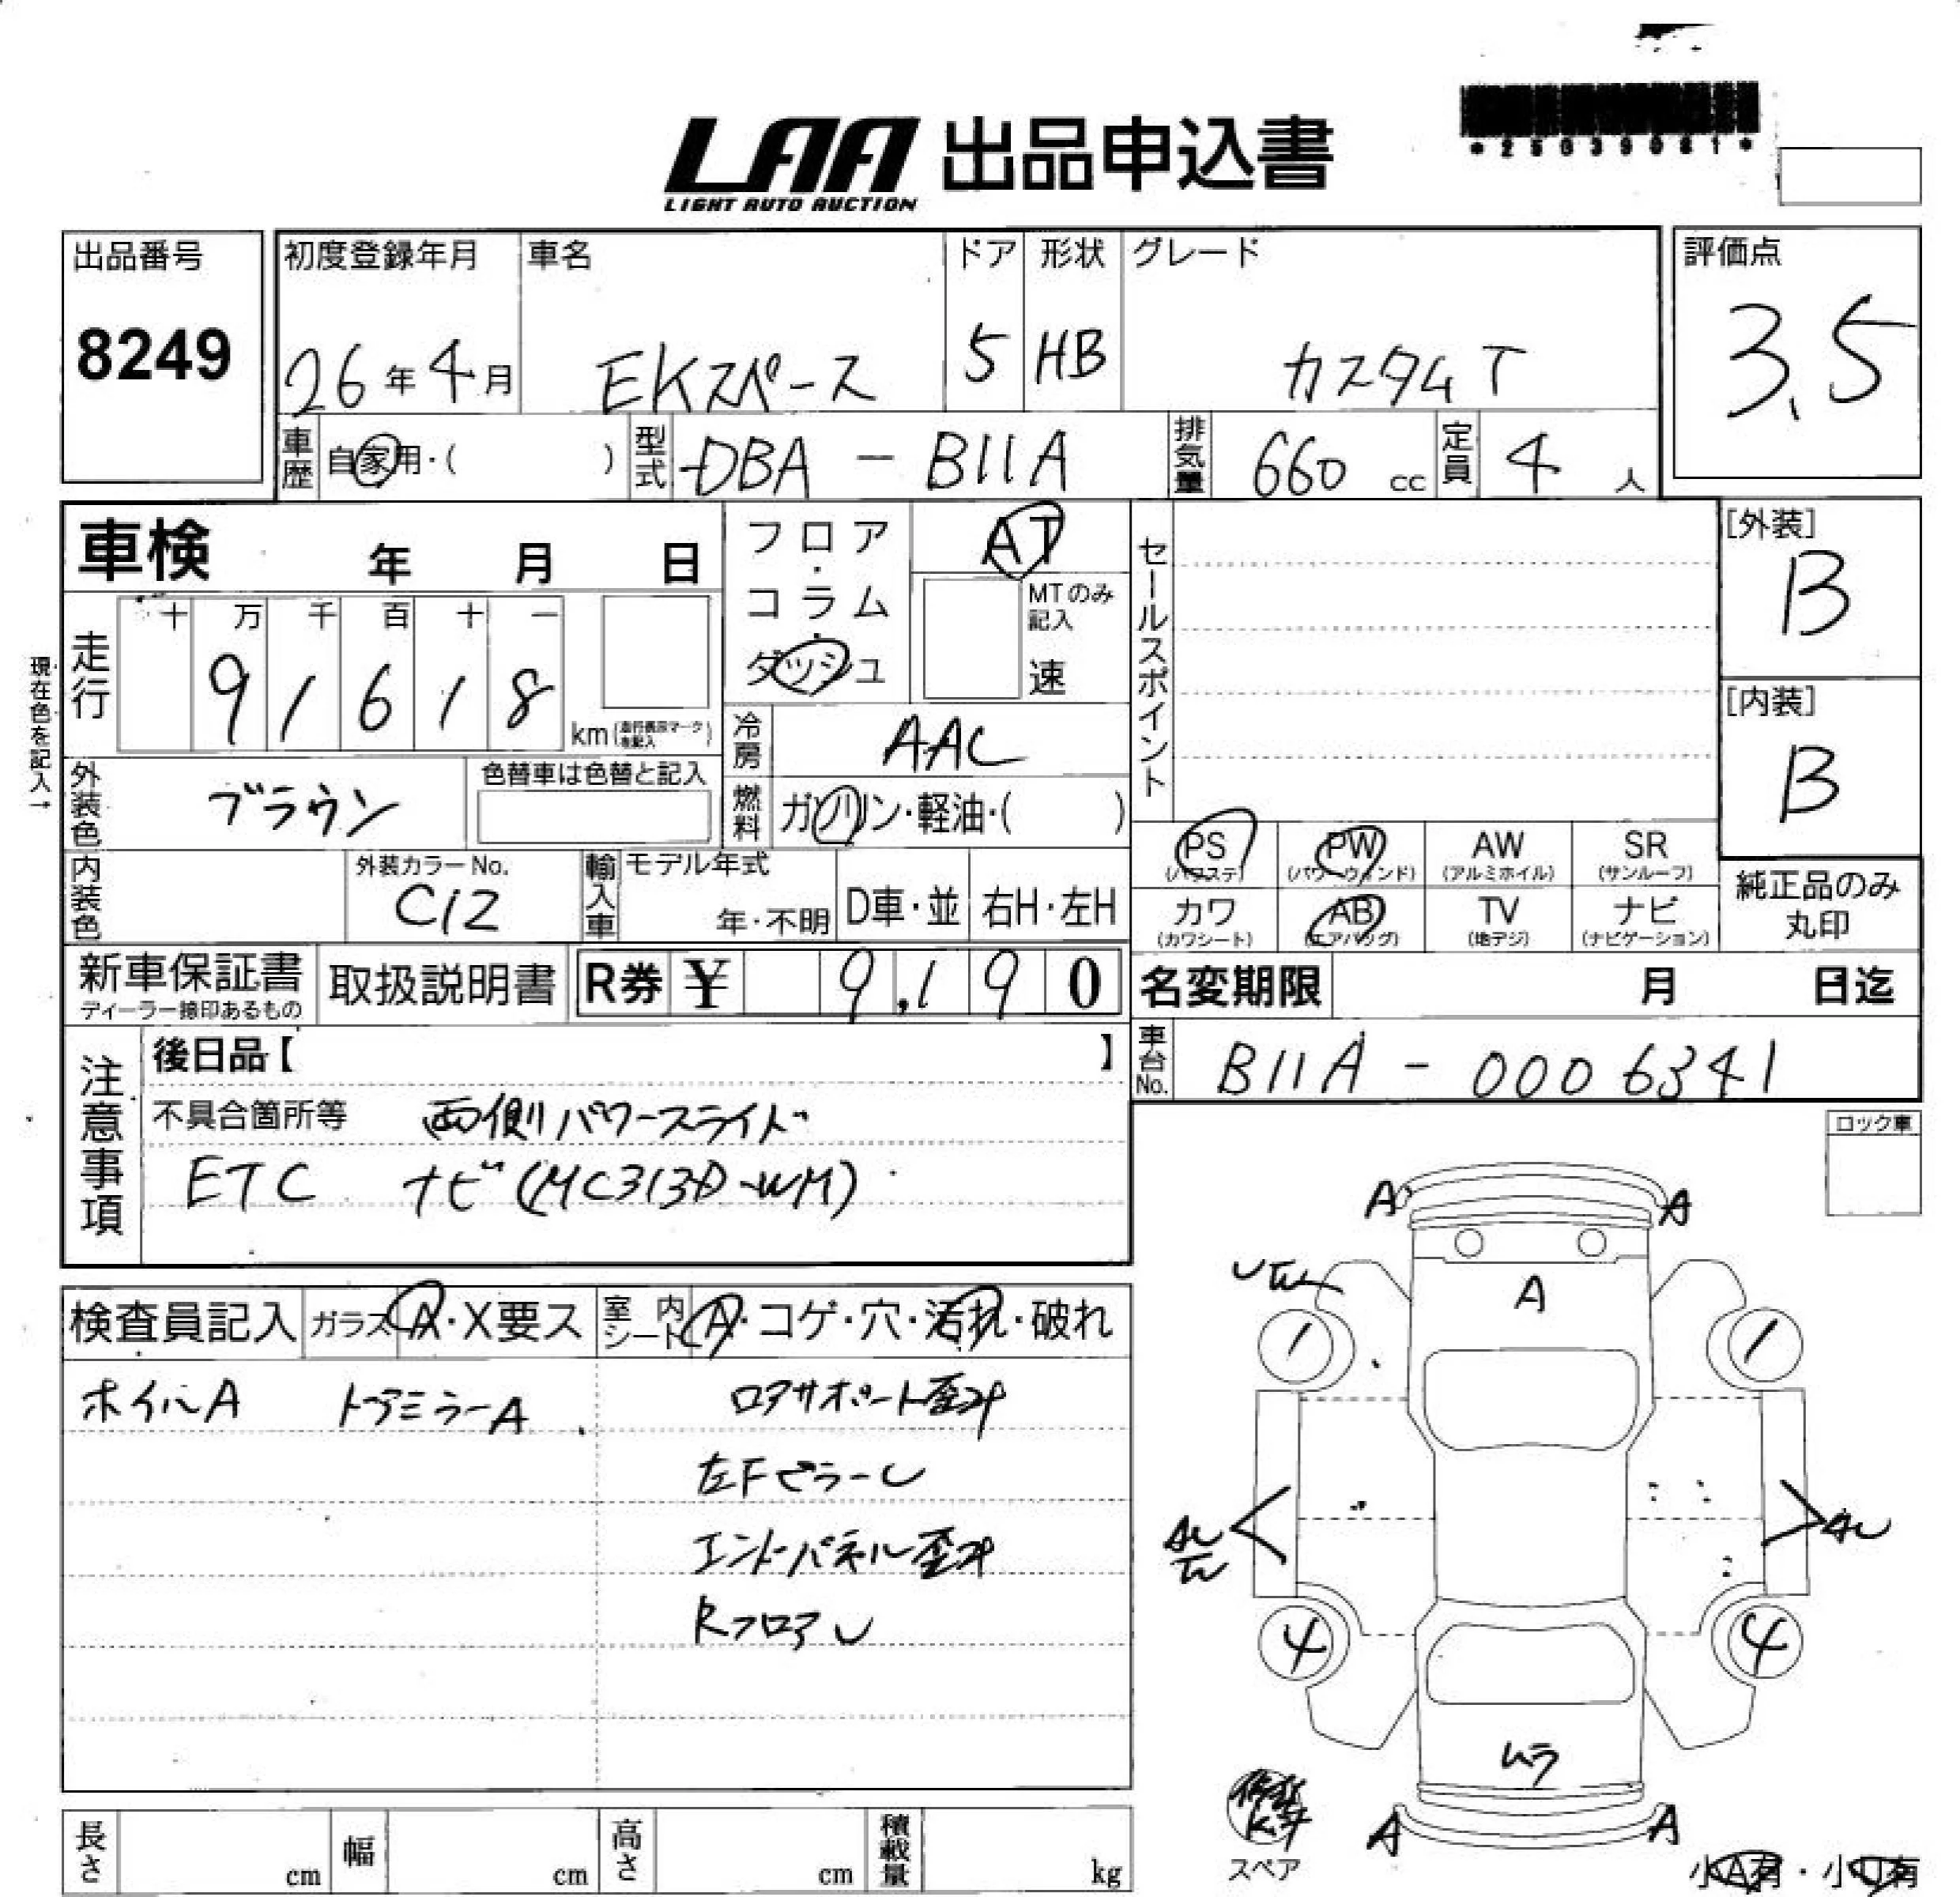 LAA 出品申込書
LIGHT AUTO AUCTION
*25039081*
出品番号 初度登録年月 車名 ドア 形状 グレード 評価点
8249 26年4月 EKスペース 5 HB カスタムT 3.5
車歴 自家用・( ) 型式 DBA - B11A 排気量 660 cc 定員 4 人
車検 年 月 日 フロア・コラム・ダッシュ AT セールスポイント [外装]
MTのみ記入 速 B
現在色を記入→
走行 十 万 千 百 十 一
9 1 6 1 8 km (走行表示マークを記入)
[内装]
B
冷房 AAC
外装色 ブラウン 色替車は色替と記入
燃料 ガソリン・軽油・( )
PS (パワステ) PW (パワーウィンド) AW (アルミホイル) SR (サンルーフ)
内装色 外装カラーNo. C12 輸入車 モデル年式 年・不明 D車・並 右H・左H
カワ (カワシート) AB (エアバッグ) TV (地デジ) ナビ (ナビゲーション) 純正品のみ丸印
新車保証書 ディーラー捺印あるもの 取扱説明書 R券 ¥ 9,190 名変期限 月 日迄
注意事項 後日品【 】 車台No. B11A - 0006341
不具合箇所等 両側パワースライド
ETC ナビ(MC313D-WM)
ロック車
検査員記入 ガラス A・X要ス 室内シート A・コゲ・穴・汚れ・破れ
ホイルA ドアミラーA コアサポート歪み
左Fピラー
エンドパネル歪み
Rフロア
A A
A
1 1
4 4
ムラ
A A
スペア
小A有・小U有
長さ cm 幅 cm 高さ cm 積載量 kg